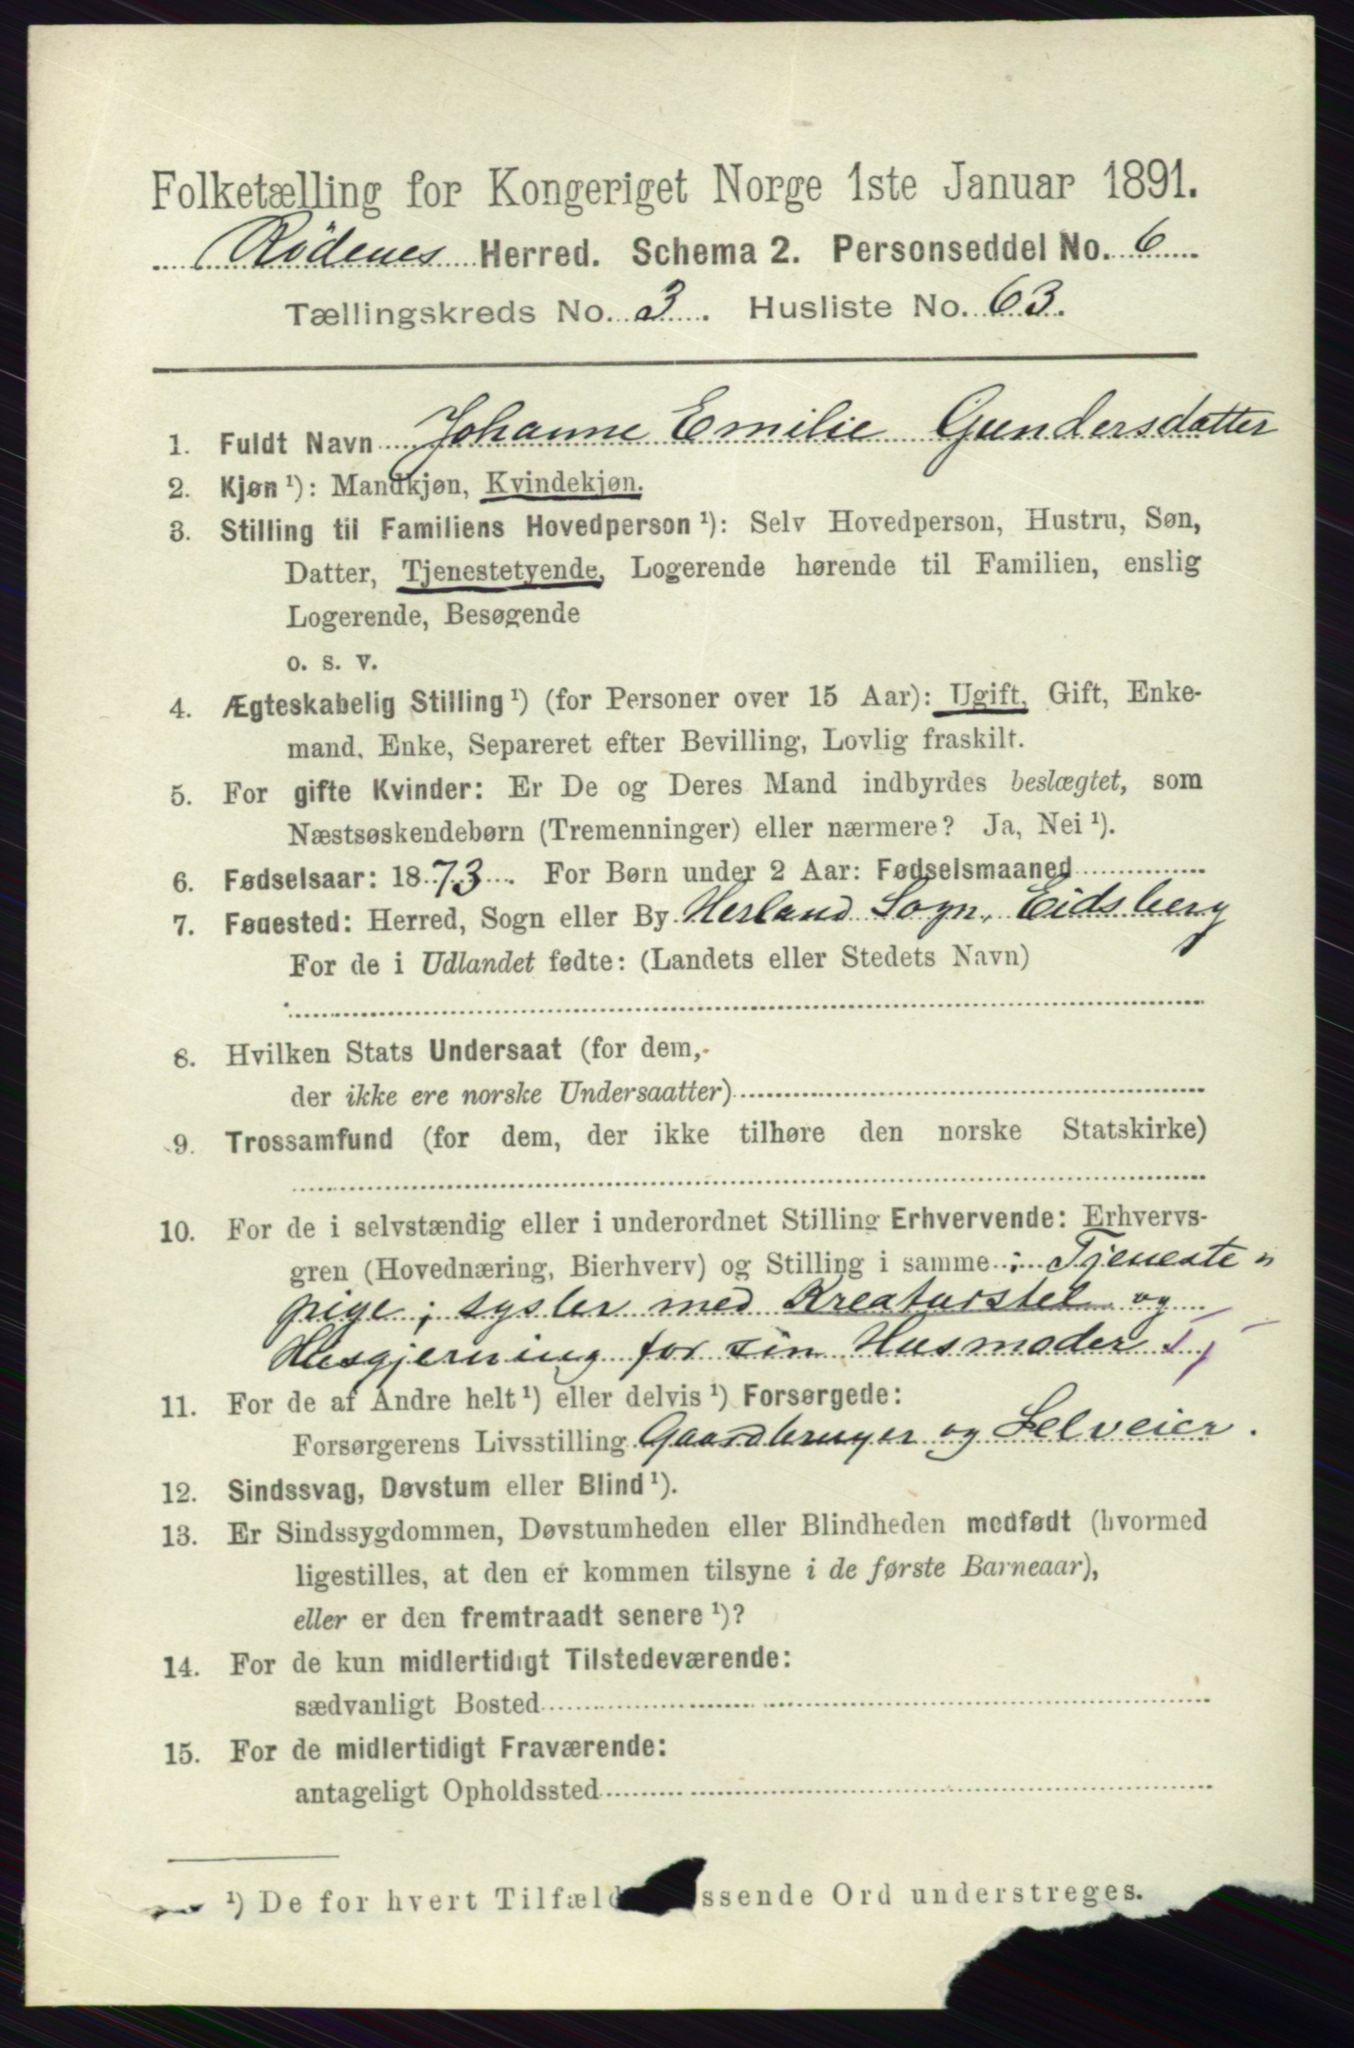 Folketælling for Kongeriget Norge 1ste Januar 1891.
Rödenes Herred. Schema 2. Personseddel No. 6
Tællingskreds No. 3. Husliste No. 63.
1. Fuldt Navn Johanne Emilie Gundersdatter
2. Kjøn ¹): Mandkjøn, Kvindekjøn.
3. Stilling til Familiens Hovedperson ¹): Selv Hovedperson, Hustru, Søn,
Datter, Tjenestetyende, Logerende hørende til Familien, enslig
Logerende, Besøgende
o. s. v.
4. Ægteskabelig Stilling ¹) (for Personer over 15 Aar): Ugift, Gift, Enke-
mand, Enke, Separeret efter Bevilling, Lovlig fraskilt.
5. For gifte Kvinder: Er De og Deres Mand indbyrdes beslægtet, som
Næstsøskendebørn (Tremenninger) eller nærmere? Ja, Nei ¹).
6. Fødselsaar: 1873. For Børn under 2 Aar: Fødselsmaaned
7. Fødested: Herred, Sogn eller By Herland Sogn, Eidsberg
For de i Udlandet fødte: (Landets eller Stedets Navn)
8. Hvilken Stats Undersaat (for dem,
der ikke ere norske Undersaatter)
9. Trossamfund (for dem, der ikke tilhøre den norske Statskirke)
10. For de i selvstændig eller i underordnet Stilling Erhvervende: Erhvervs-
gren (Hovednæring, Bierhverv) og Stilling i samme: Tjeneste=
pige; sysler med Kreaturstel og
Husgjerning for sin Husmoder Tj
11. For de af Andre helt ¹) eller delvis ¹) Forsørgede:
Forsørgerens Livsstilling Gaardbruger og Selveier.
12. Sindssvag, Døvstum eller Blind ¹).
13. Er Sindssygdommen, Døvstumheden eller Blindheden medfødt (hvormed
ligestilles, at den er kommen tilsyne i de første Barneaar),
eller er den fremtraadt senere ¹)?
14. For de kun midlertidigt Tilstedeværende:
sædvanligt Bosted
15. For de midlertidigt Fraværende:
antageligt Opholdssted
¹) De for hvert Tilfæld ssende Ord understreges.